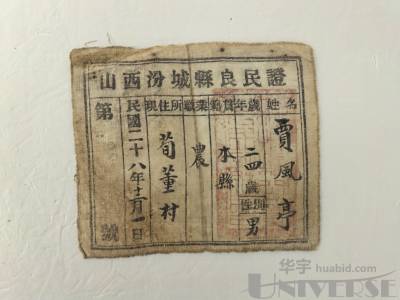 山西汾城縣良民證
姓名
賈風亭
年歲
二四歲
性別
男
籍貫
本縣
職業
農
現住所
荀董村
民國二十八年
月一日
第
號
华宇 huabid.com
UNIVERSE